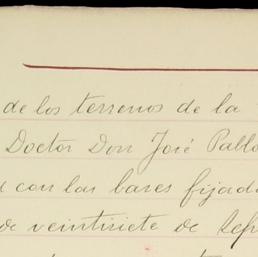 de los terrenos de la
Doctor Don José Pablo
con las bases fijad
de veintisiete de Sep